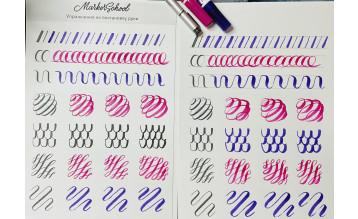 MarkerSchool
Упражнения на постановку руки